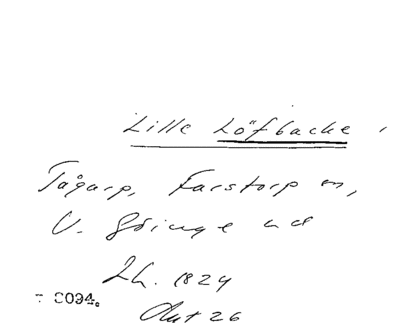 Lille Löfbacke,
Tågarp, Farstorp sn,
V. Göinge hd
Lh. 1824
Akt 26